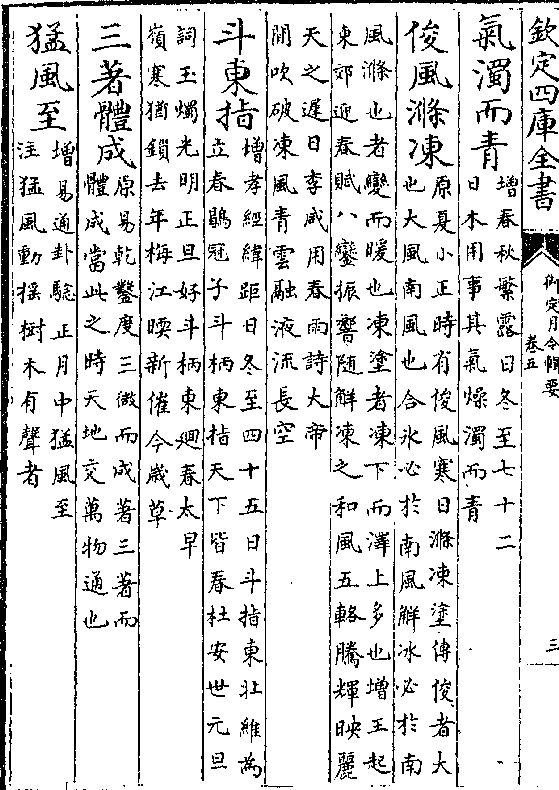 欽定四庫全書
御定月令輯要
卷五
三
氣濁而青
增春秋繁露日冬至七十二
日木用事其氣燥濁而青
俊風滌凍
原夏小正時有俊風寒日滌凍塗傳俊者大
也大風南風也合氷必於南風解冰必於南
風滌也者變而暖也凍塗者凍下而澤上多也增王起
東郊迎春賦八鑾振響随解凍之和風五輅騰輝映麗
天之遲日李咸用春雨詩大帝
閒吹破凍風青雲融液流長空
斗東指
增孝經緯距日冬至四十五日斗指東北維為
立春鶡冠子斗柄東指天下皆春杜安世元旦
詞玉燭光明正旦好斗柄東廻春太早
嶺寒猶鎖去年梅江暖新催今歲草
三著體成
原易乾鑿度三微而成著三著而
體成當此之時天地交萬物通也
猛風至
增易通卦驗正月中猛風至
注猛風動揺樹木有聲者